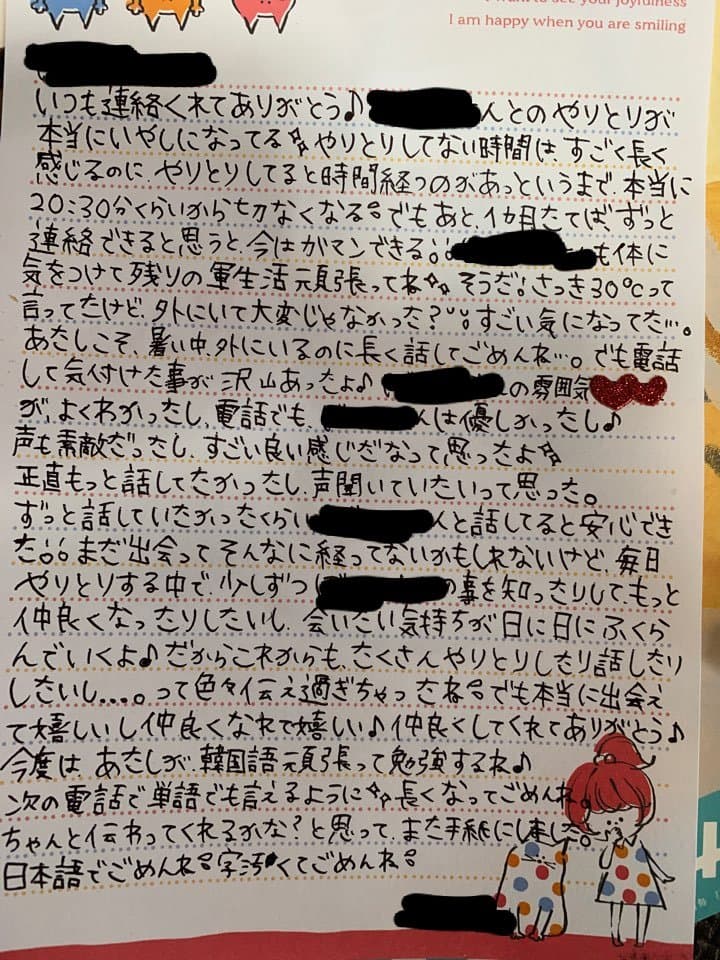 I want to see your joyfulness
I am happy when you are smiling
いつも連絡くれてありがとう♪ んとのやりとりが
本当にいやしになってる やりとりしてない時間は、すごく長く
感じるのに、やりとりしてると時間経つのがあっというまで、本当に
20:30分くらいから切なくなる。でもあと、1カ月たてば、ずっと
連絡できると思うと、今はガマンできる。。 も体に
気をつけて残りの軍生活頑張ってね そうだ!さっき30℃って
言ってたけど、外にいて大変じゃなかった?すごい気になってた…。
あたしこそ、暑い中、外にいるのに長く話してごめんね…。でも電話
して気付けた事が沢山あったよ♪ の雰囲気
が、よくわかったし、電話でも、 んは優しかったし♪
声も素敵だったし、すごい良い感じだなって思ったよ
正直もっと話してたかったし、声聞いていたいって思った。
ずっと話していたかったくらい んと話してると安心でき
た。。まだ出会ってそんなに経ってないかもしれないけど、毎日
やりとりする中で、少しずつ の事を知ったりして、もっと
仲良くなったりしたいし、会いたい気持ちが日に日にふくら
んでいくよ♪だからこれからも、たくさんやりとりしたり話したり
したいし....。って色々伝え過ぎちゃったね。でも本当に出会え
て嬉しいし仲良くなれて嬉しい♪仲良くしてくれてありがとう♪
今度は、あたしが、韓国語頑張って勉強するね♪
次の電話で単語でも言えるように 長くなってごめんね。
ちゃんと伝わってくれるかな?と思って、また手紙にしました。
日本語でごめんね。字汚くてごめんね。